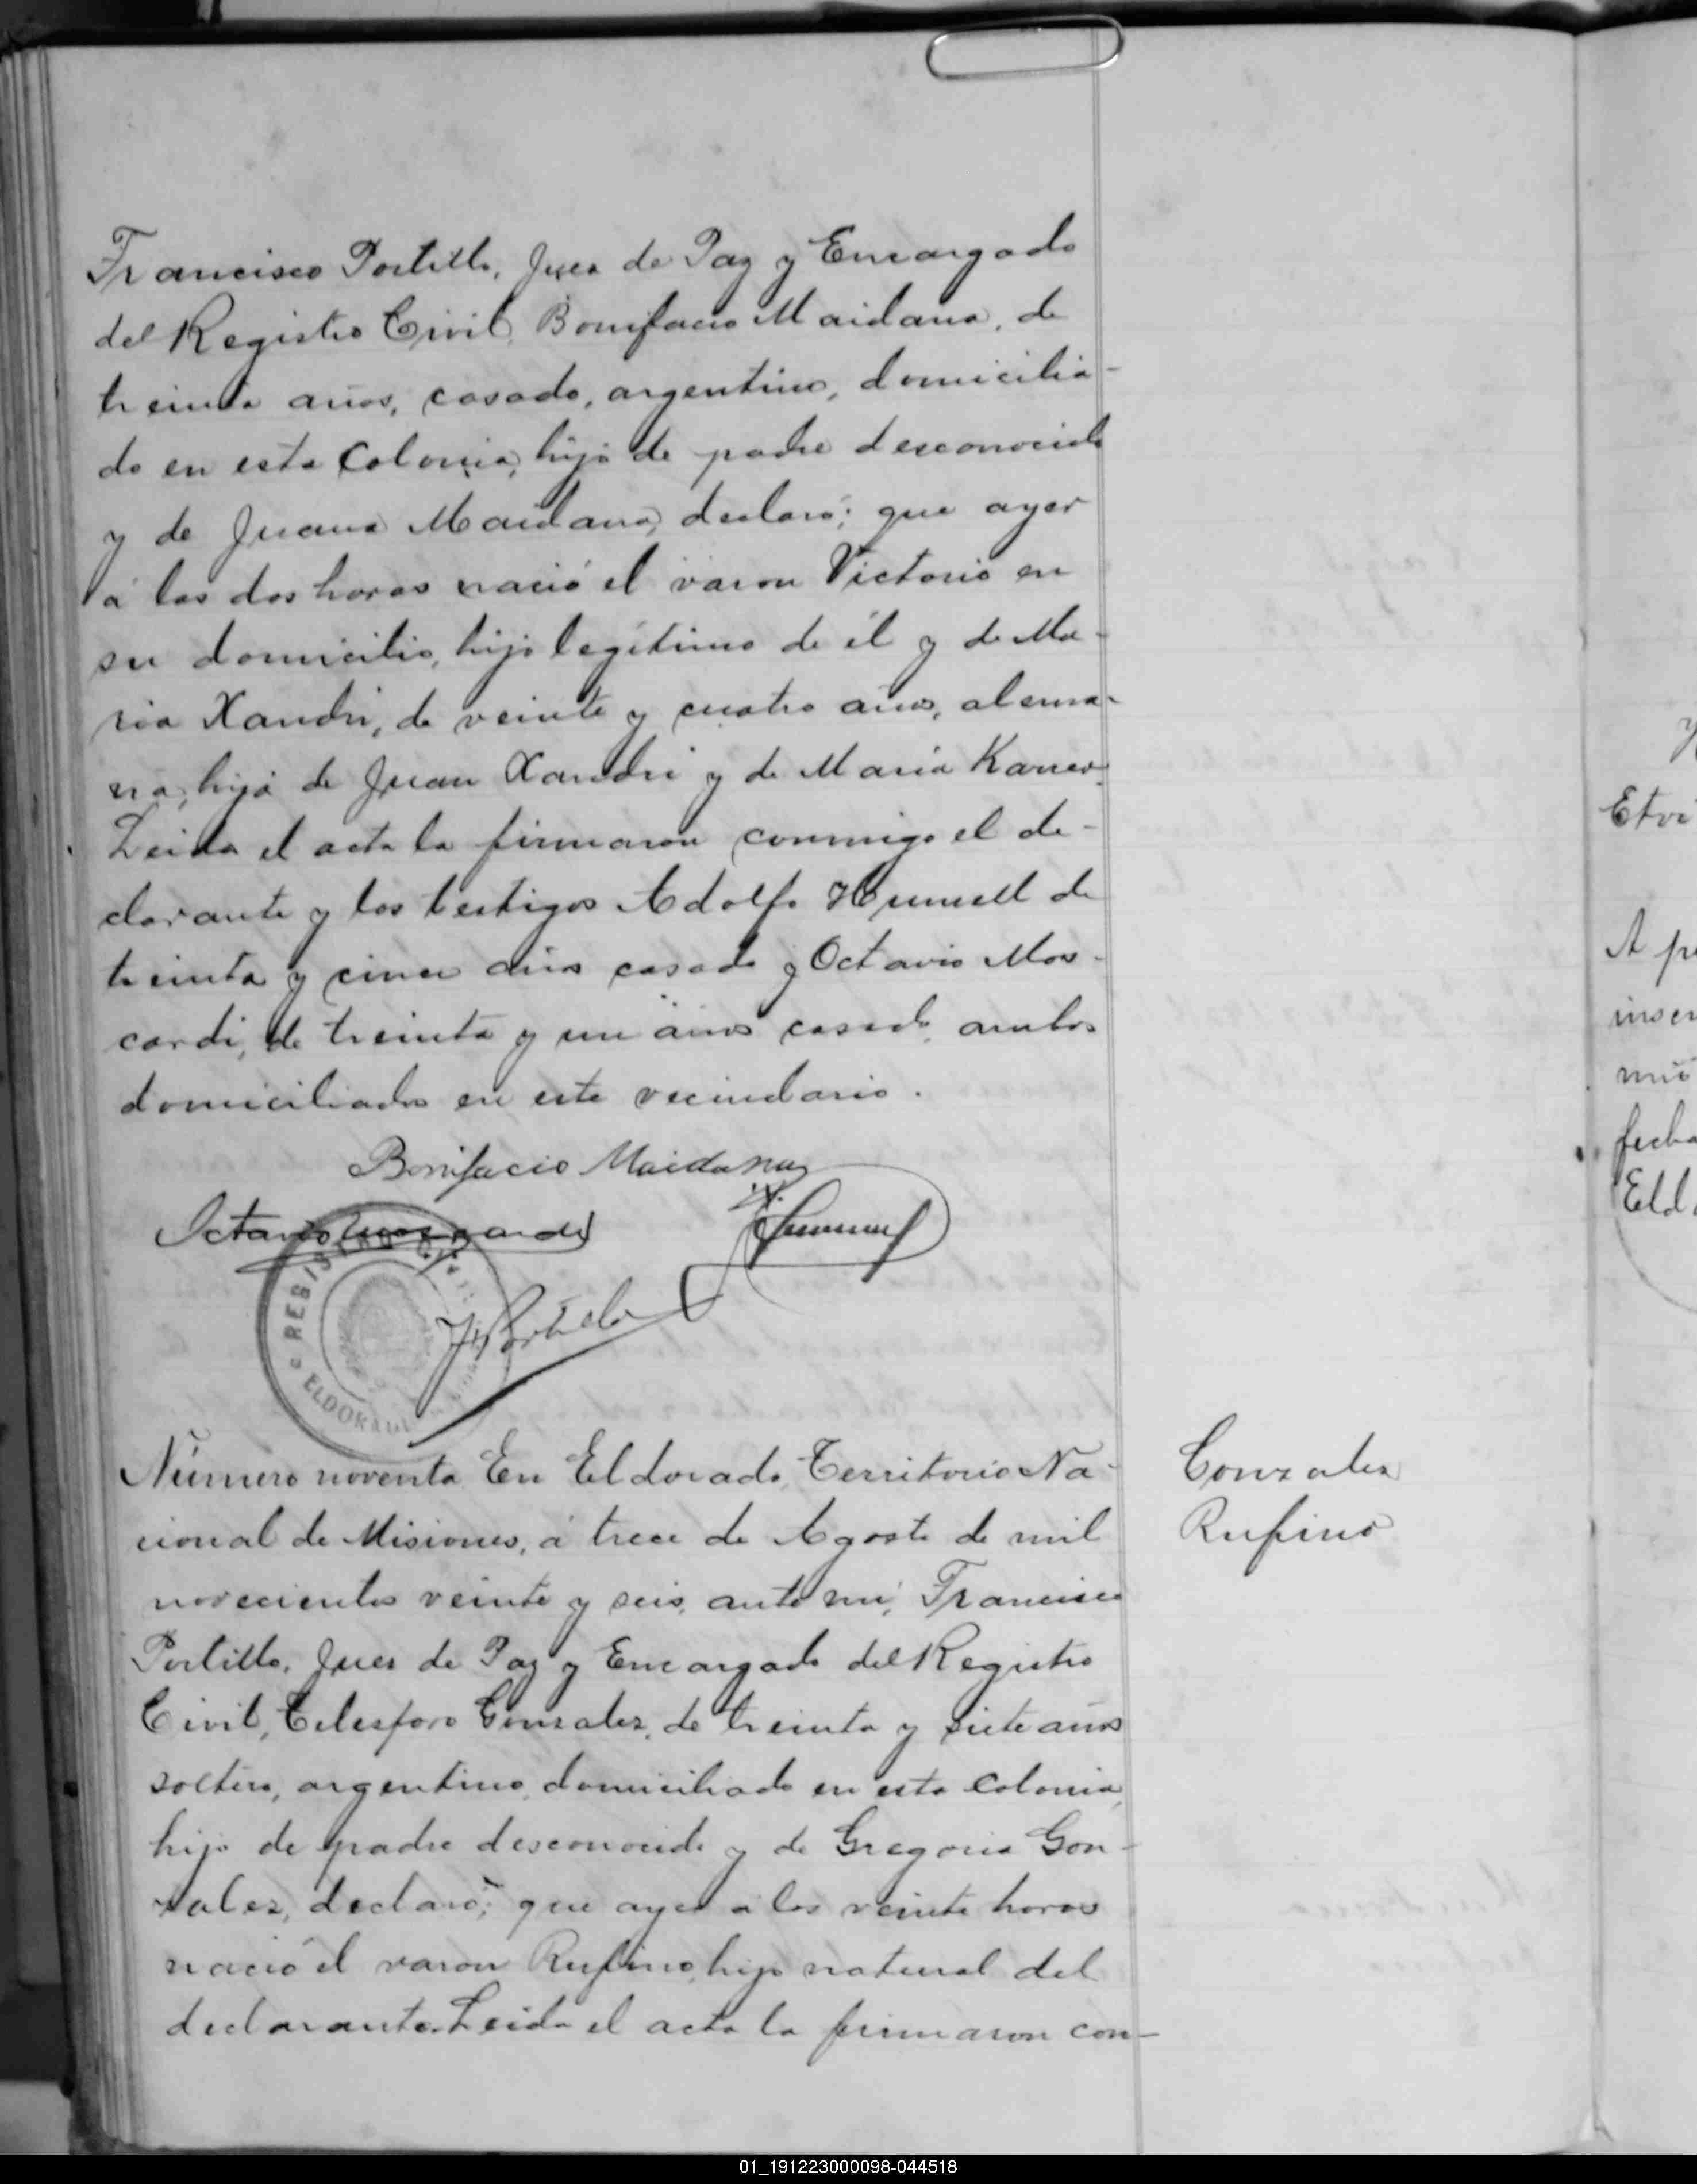 Francisco Portillo, Juez de Paz y Encargado
del Registro Civil, Bonifacio Maidana, de
treinta años, casado, argentino, domicilia-
do en esta Colonia, hijo de padre desconocido
y de Juana Maidana, declaró; que ayer
á las dos horas nació el varon Victorio en
su domicilio, hijo legítimo de él y de Ma-
ria Xandri, de veinte y cuatro años, alema-
na, hija de Juan Xandri y de Maria
Leida el acta la firmaron conmigo el de-
clarante y los testigos Adolfo Hummell de
treinta y cinco años casado y Octavio Mos-
cardi, de treinta y un años casado, ambos
domiciliados en este vecindario.
Bonifacio Maidana
Octavio Moscardi
Hummel
F. Portillo
REGISTRO CIVIL
ELDORADO
Número noventa En Eldorado, Territorio Na-
cional de Misiones, á trece de Agosto de mil
novecientos veinte y seis, ante mi, Francisco
Portillo, Juez de Paz y Encargado del Registro
Civil, Telesforo Gonzalez, de treinta y siete años
soltero, argentino, domiciliado en esta Colonia,
hijo de padre desconocido y de Gregoria Gon-
zalez, declaró; que ayer á las veinte horas
nació el varon Rufino, hijo natural del
declarante. Leida el acta la firmaron con-
Gonzalez
Rufino
Etvi
A pe
inser
mil
fecha
Eld
01_191223000098-044518